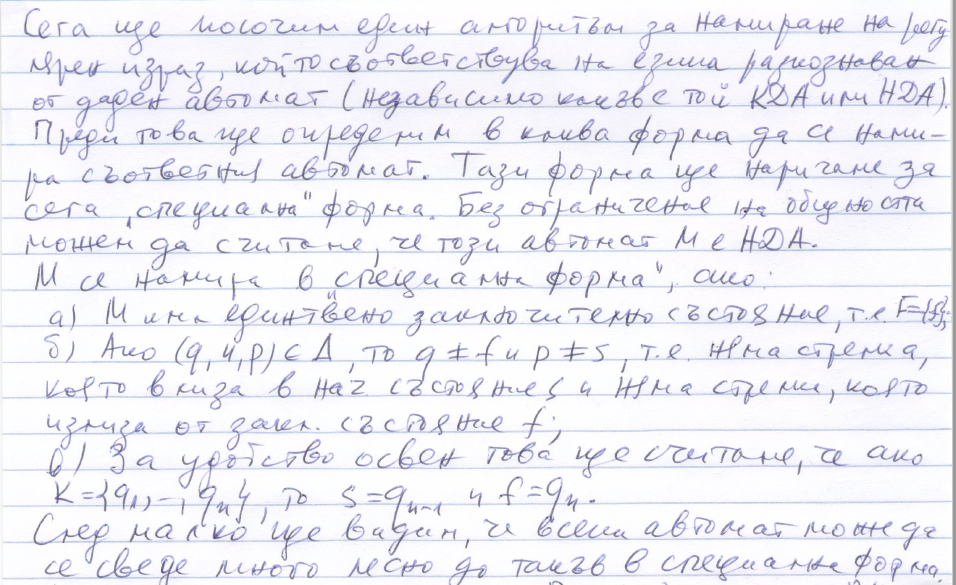 Сега ще посочим един алгоритъм за намиране на регу
лярен израз, който съответствува на езика разпознаван
от даден автомат (независимо какъв е той КДА или НДА).
Преди това ще определим в каква форма да се нами-
ра съответния автомат. Тази форма ще наричаме за
сега "специална" форма. Без ограничение на общността
можем да считаме, че този автомат M е НДА.
M се намира в "специална форма", ако:
а) M има единствено заключително състояние, т.е. F={f};
б) Ако (q, u, p) ∈ Δ, то q ≠ f и p ≠ s, т.е. няма стрелка,
която влиза в нач. състояние s и няма стрелки, която
излиза от закл. състояние f;
в) За удобство освен това ще считаме, че ако
K={q₁, –, qₙ}, то s=qₙ₋₁ и f=qₙ.
След малко ще видим, че всеки автомат може да
се сведе много лесно до такъв в специална форма.